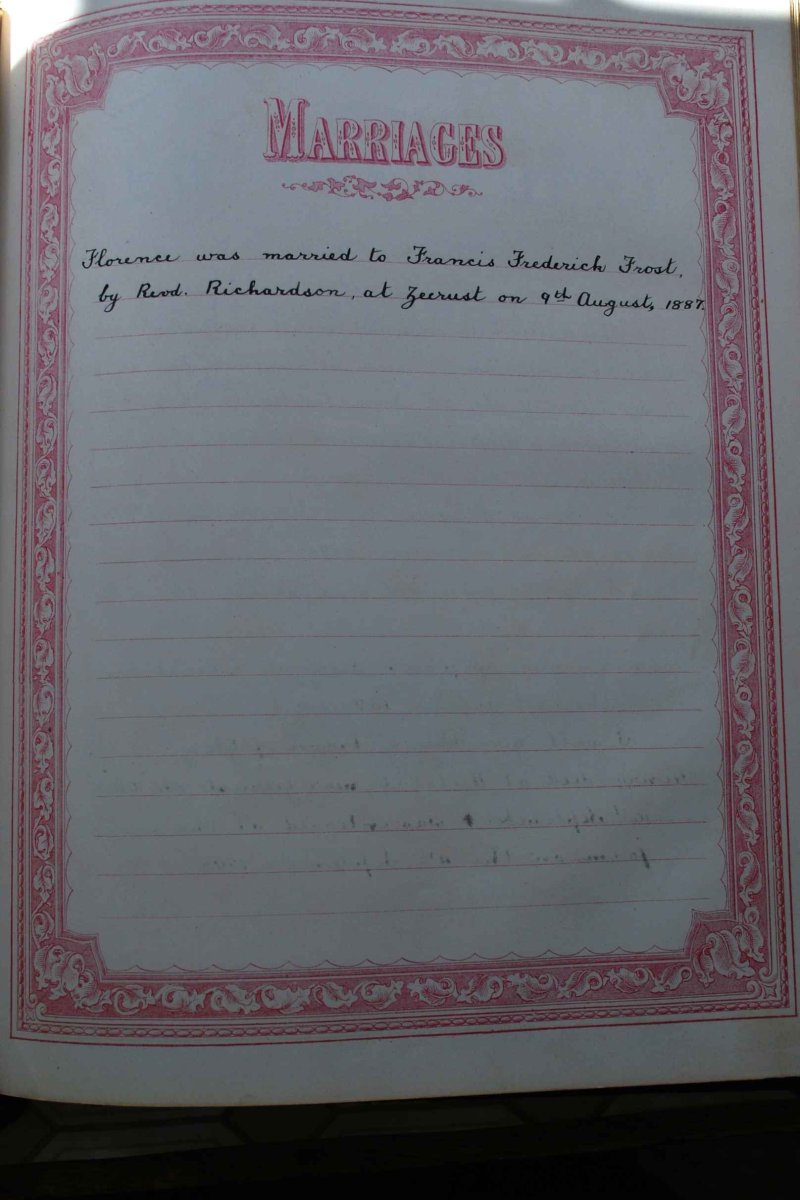 MARRIAGES
Florence was married to Francis Frederick Frost,
by Revd. Richardson, at Zeerust on 9th August, 1887.